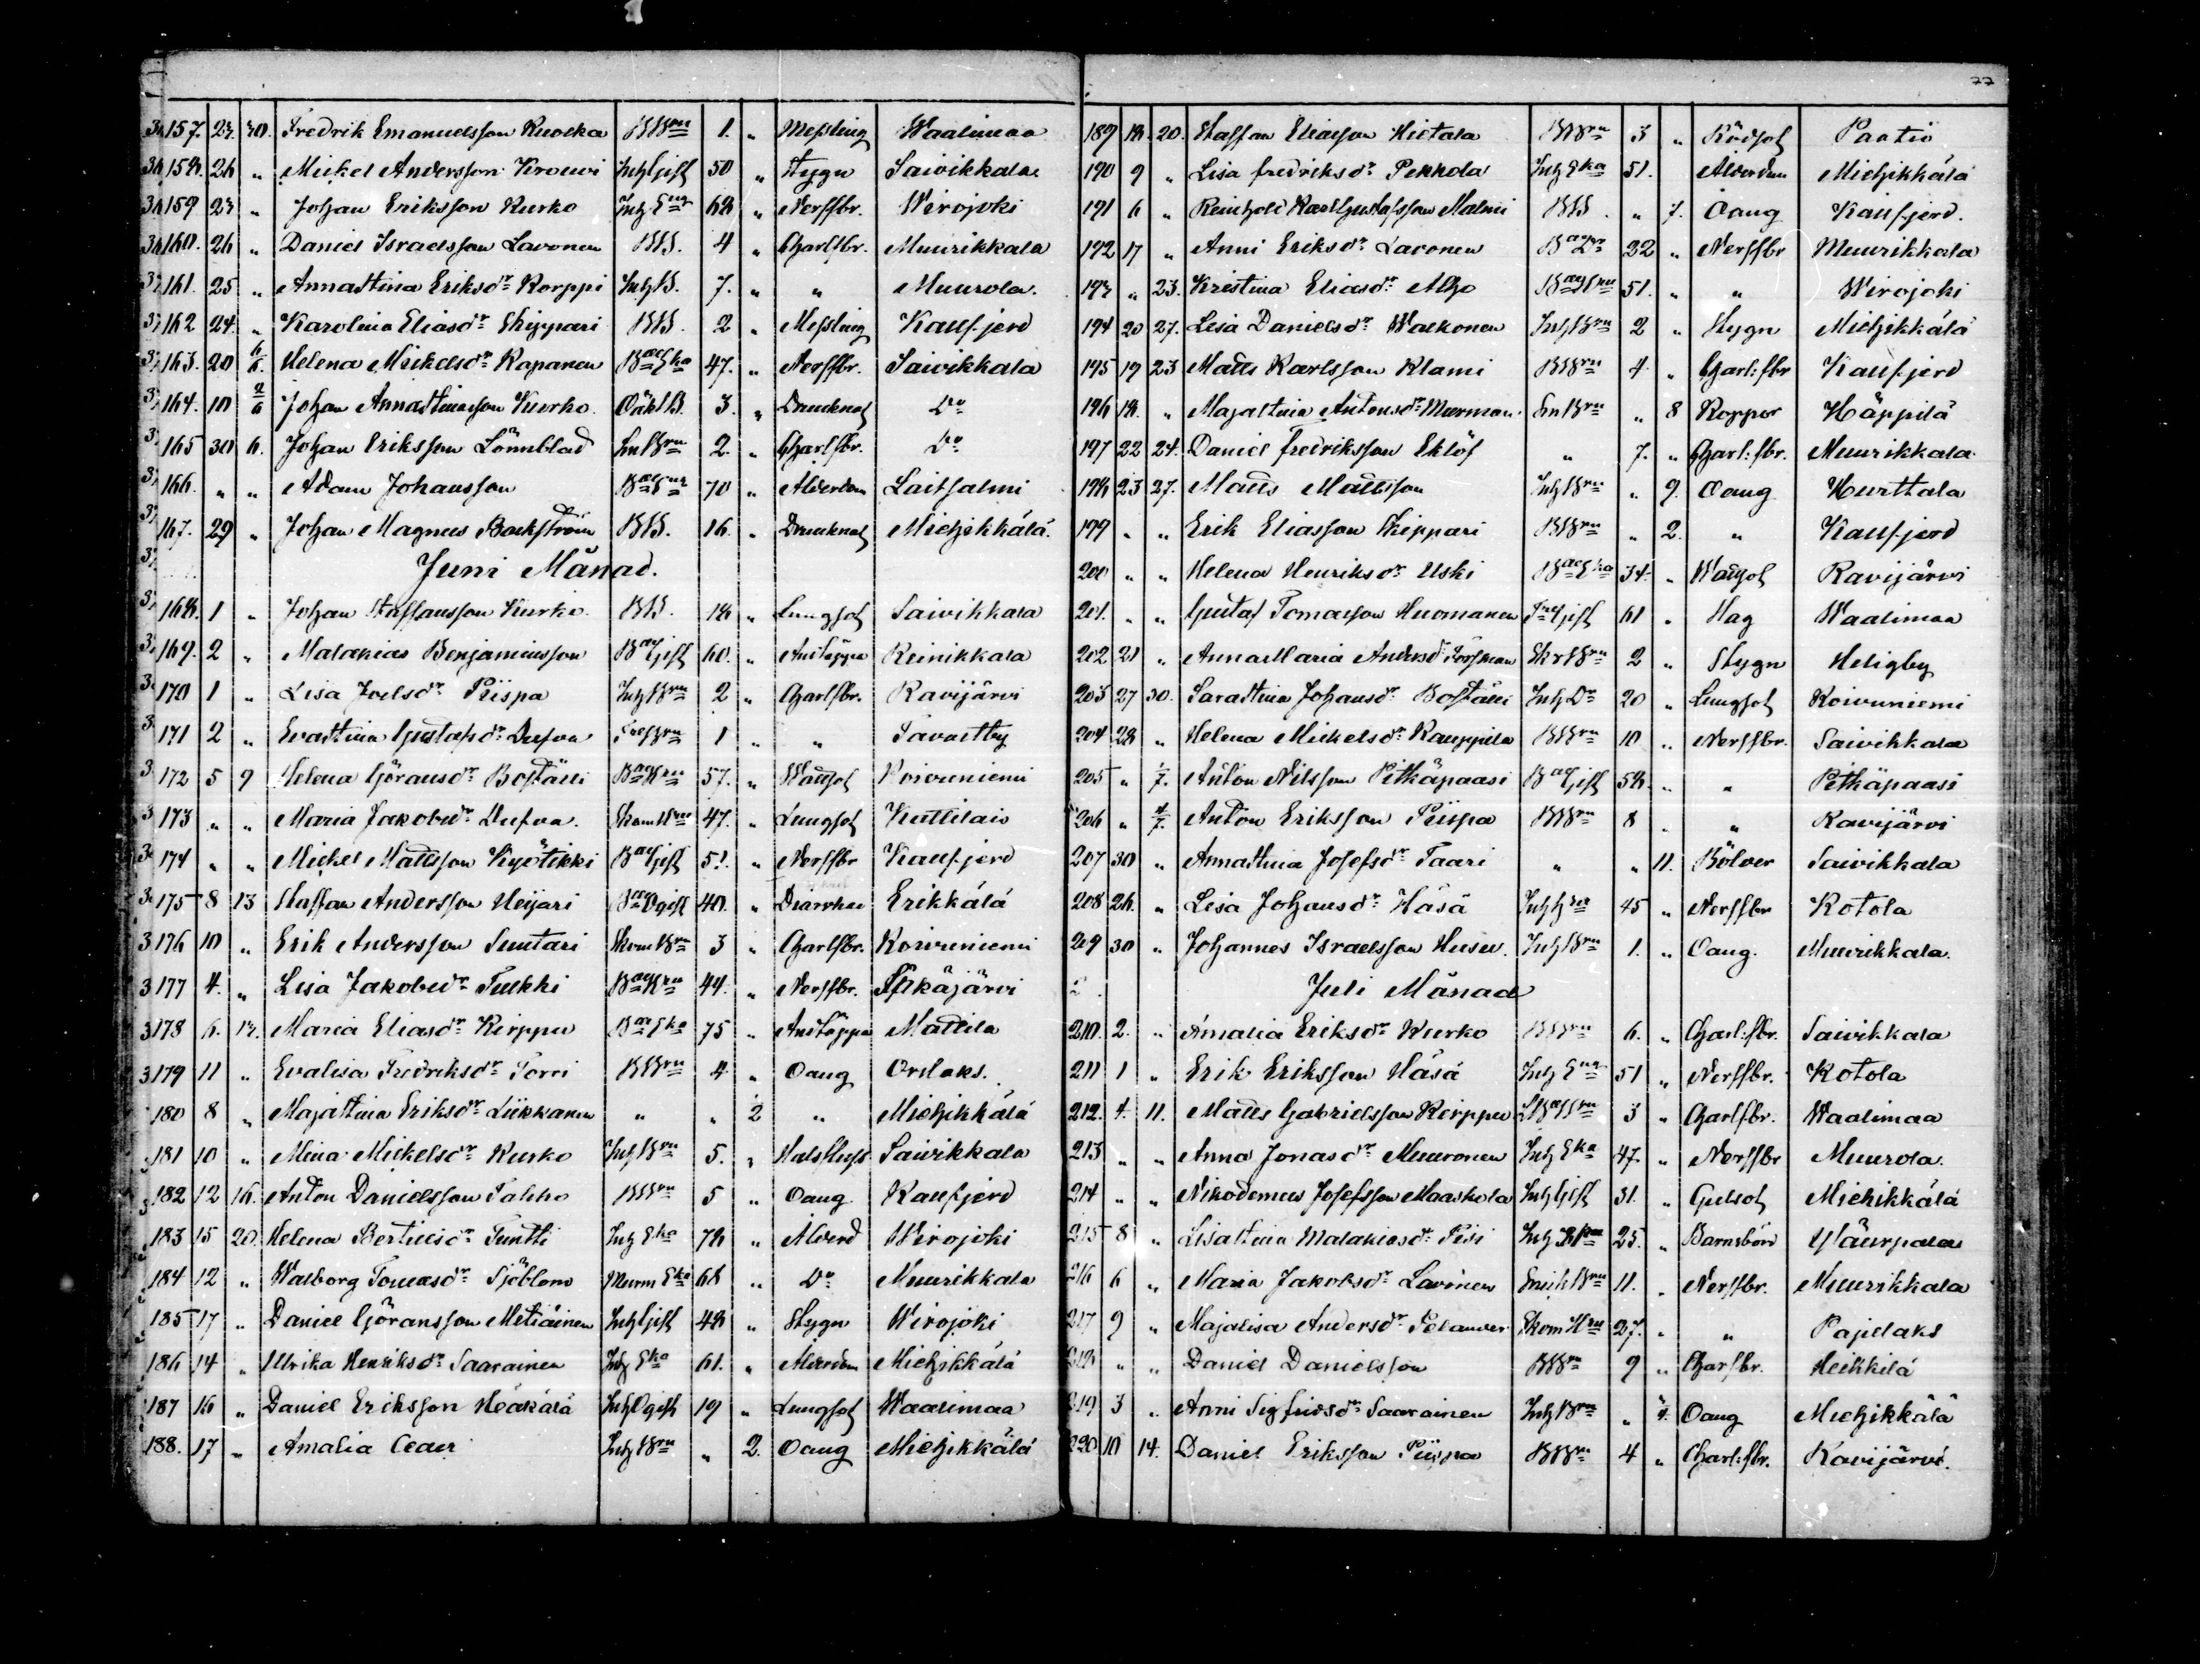 77
157. 23. 30. Fredrik Emanuelsson Kuokka BBrn 1. " Messling Waalimaa
158. 26 " Mickel Andersson Krouvi Inhgift 50 " Hygn Saivikkala
159 23 " Johan Eriksson Kurko Inh 68 " Nerffbr. Wirojoki
160. 26 " Daniel Israelsson Lavonen BB. 4 " Charlfbr. Muurikkala
161. 25 " Annastina Eriksdr Korppi InhB. 7. " " Muurola.
162 24. " Karolina Eliasdr Skippari BB. 2 " Messling Kallfjerd
163. 20 6/6. Helena Mickelsdr Rapanen Eka 47. " Nerffbr. Saivikkala
164. 10 2/6 Johan Annastinasson Kurko OäktB. 3. " Drucknat Do
165 30 6. Johan Eriksson Lönnblad Brn 2. " Charlfbr. Do
166. " " Adam Johansson 70 " Alderdom Laitsalmi
167. 29 " Johan Magnus Backström BB. 16. " Drucknat Miehikkälä.
Juni Månad.
168. 1 " Johan Staffansson Kurko BB. 18 " Lungsot Saivikkala
169. 2 " Malakias Benjaminsson gift 60. " Andtäppa Reinikkala
170 1 " Lisa Joelsdr Piispa InhBrn 2 " Charlfbr. Ravijärvi
171 2 " Evastina Gustafsdr Dufva Brn 1 " " Tavastby
172 5 9 Helena Göransdr Boställi 57. " Wattsot Koivuniemi
173 " " Maria Jakobsdr Dufva. 47. " Lungsot Kattilais
174 " " Mickel Mattsson Kyötikki gift 51. " Nerffbr Kallfjerd
175 8 13 Staffan Andersson Heijari gift 40. " Diarrhae Erikkälä
176 10 " Erik Andersson Suutari Brn 3 " Charlfbr. Koivuniemi
177 4. " Lisa Jakobsdr Tulkki 44. " Nerffbr. Pitkäjärvi
178 6. 13. Maria Eliasdr Kirppu Eka 75 " Andtäppa Mattila
179 11 " Evalisa Fredriksdr Torri BBrn 4 " Oang Orslaks.
180 8 " Majastina Eriksdr Liikkanen " " 2 " Miehikkälä
181 10 " Mina Mickelsdr Kurko InhBrn 5. " Halsfluss Saivikkala
182 12 16. Anton Danielsson Taleho BBrn 5 " Oang Kallfjerd
183 15 20. Helena Bertilsdr Tuntti Inh Eka 78 " Alderd Wirojoki
184 12 " Walborg Tomasdr Sjöblom Murm Eka 68 " Do Muurikkala
185 17 " Daniel Göransson Metiäinen Inhgift 48 " Hygn Wirojoki
186 14 " Ulrika Henriksdr Saarainen Inh Eka 61. " Alderdom Miehikkälä
187 16 " Daniel Eriksson Heäkälä Inhogift 19 " Lungsot Waalimaa
188. 17 " Amalia InhBrn " 2. Oang Miehikkälä
189 18. 20. Staffan Eliasson Hietala BBrn 3 " Rödsot Paatio
190 9 " Lisa fredriksdr Pekkola Inh Eka 51. Alderdom Miehikkälä
191 6 " Reinhold Karl Gustafsson Malmi BB. " 7. Oang Kallfjerd.
192 17 " Anni Eriksdr Lavonen 32 " Nerffbr Muurikkala
193 " 23. Kristina Eliasdr Alho 51. " " Wirojoki
194 20 27. Lisa Danielsdr Walkonen InhBrn 2 " Hygn Miehikkälä
195 19 23 Matts Karlsson Klami BBrn 4. " Charl:fbr Kallfjerd
196 18. " Majastina Antonsdr Murman. Brn " 8 Koppor Häppilä
197 22 24. Daniel fredriksson Eklöf " 7. " Charl:fbr. Muurikkala
198 23 27. Matts Mattsson InhBrn " 9. Oang Hurttala
199 " " Erik Eliasson Skippari BBrn " 2. " Kallfjerd
200 " " Helena Henriksdr Uski Eka 34. " Wattsot Ravijärvi
201. " " Gustaf Tomasson Huomanen gift 61 " Hag Waalimaa
202 21 " AnnaMaria Andersdr Forsman Brn 2 " Hygn Heligby
203 27 30. Sarastina Johansdr Boställi Inh Dr 20 " Lungsot Koivuniemi
204 28 " Helena Mickelsdr Kauppila BBrn 10 " Nerffbr. Saivikkala
205 " 1/7. Anton Nilsson Pitkäpaasi gift 58. " " Pitkäpaasi
206 " 4/7. Anton Eriksson Piispa BBrn 8 " " Ravijärvi
207 30 " Annastina Josefsdr Taari " " 11. Bölder Saivikkala
208 26. " Lisa Johansdr Häsä 45 " Nerffbr Kotola
209 30 " Johannes Israelsson Husu. InhBrn 1. " Oang. Muurikkala.
Juli Månad
210. 2. " Amalia Eriksdr Kurko BBrn 6. " Charl:fbr. Saivikkala
211 1 " Erik Eriksson Häsä Inh 51 " Nerffbr. Kotola
212. 4. 11. Matts Gabrielsson Kirppu 3 " Charlfbr. Waalimaa
213 " " Anna Jonasdr Muuronen Inh Eka 47. " Nerffbr Muurola.
214 " " Nikodemus Josefsson Maaskola Inhgift 31. " Gulsot Miehikkälä
215 8 " Lisastina Malakiasdr Pisi 25. " Barnsbörd
216 6 " Maria Jakobsdr Lavonen Brn 11. " Nerffbr. Muurikkala
217 9 " Majalisa Andersdr Telander 27. " " Pajulaks
218 " " Daniel Danielsson BBrn 9 " Charfbr. Heikkilä
219 3 " Anni Sigfridsdr Saarainen InhBrn " Oang Miehikkälä
220 10 14. Daniel Eriksson Piispa BBrn 4 " Charl:fbr. Ravijärvi.